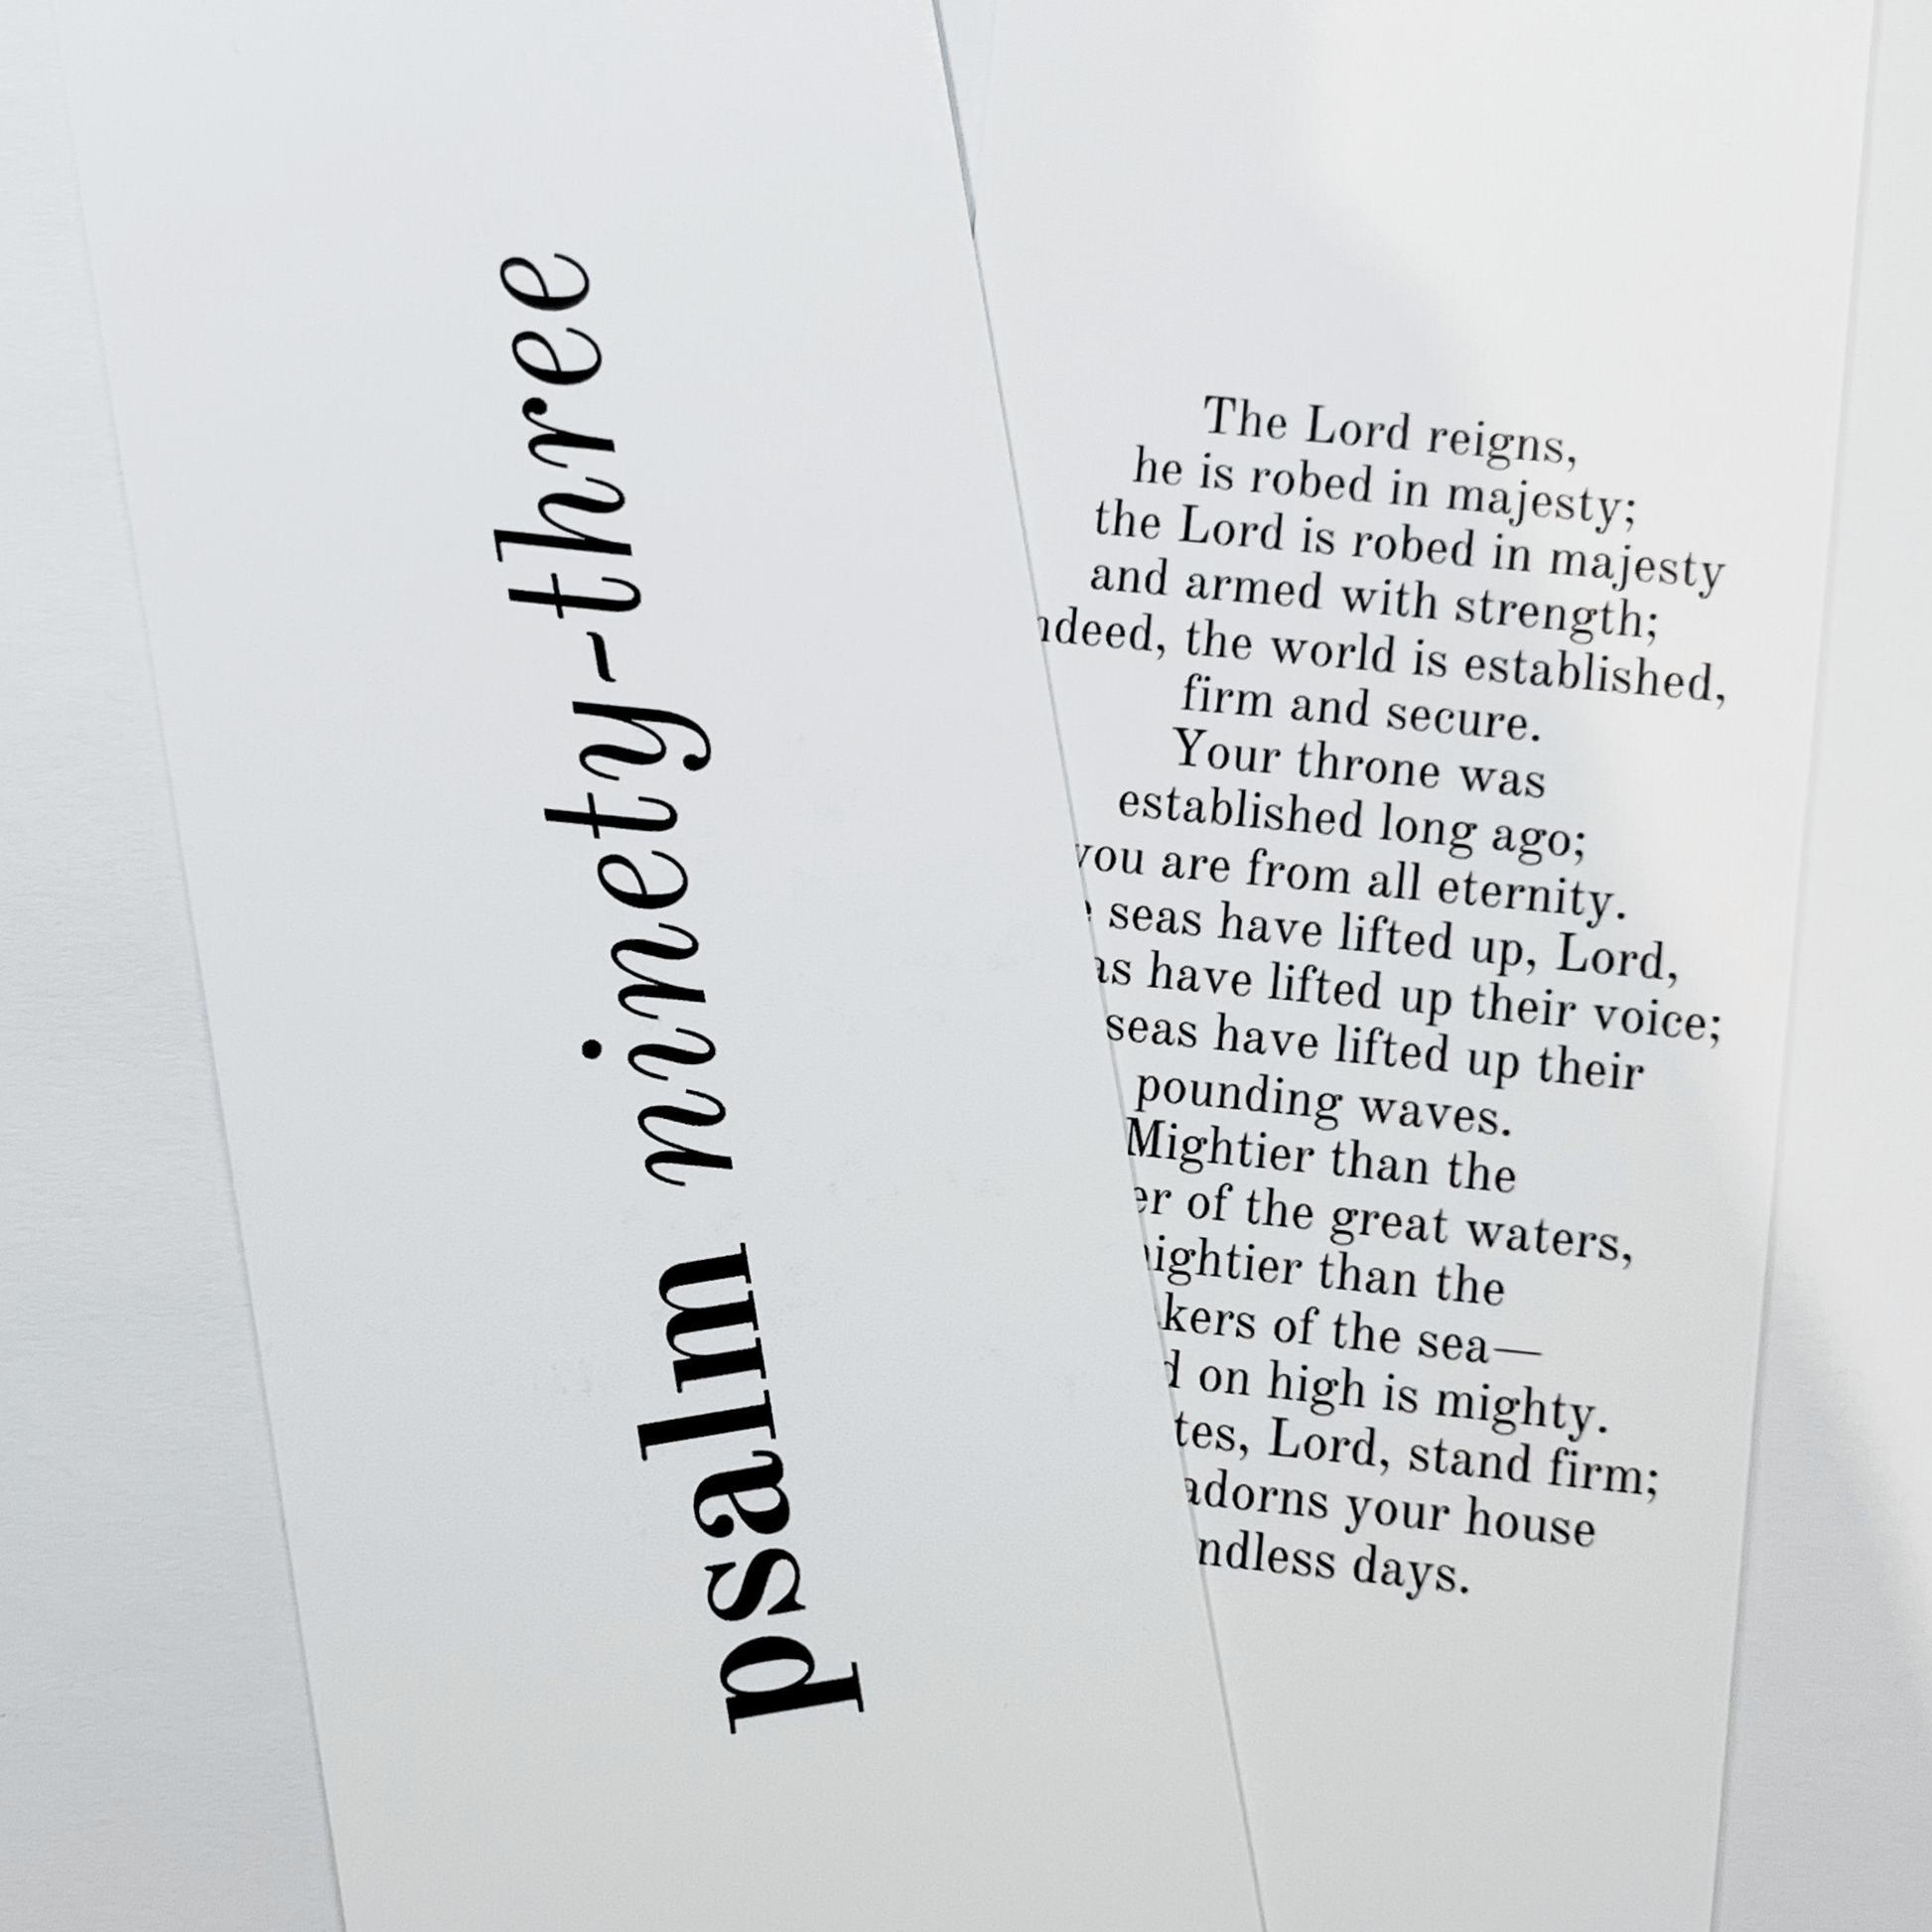 psalm ninety-three
The Lord reigns,
he is robed in majesty;
the Lord is robed in majesty
and armed with strength;
ndeed, the world is established,
firm and secure.
Your throne was
established long ago;
you are from all eternity.
seas have lifted up, Lord,
as have lifted up their voice;
seas have lifted up their
pounding waves.
Mightier than the
er of the great waters,
ightier than the
kers of the sea—
d on high is mighty.
tes, Lord, stand firm;
adorns your house
ndless days.